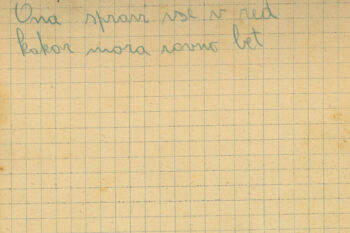 Ona spravi vse v red
kakor mora rovno bet